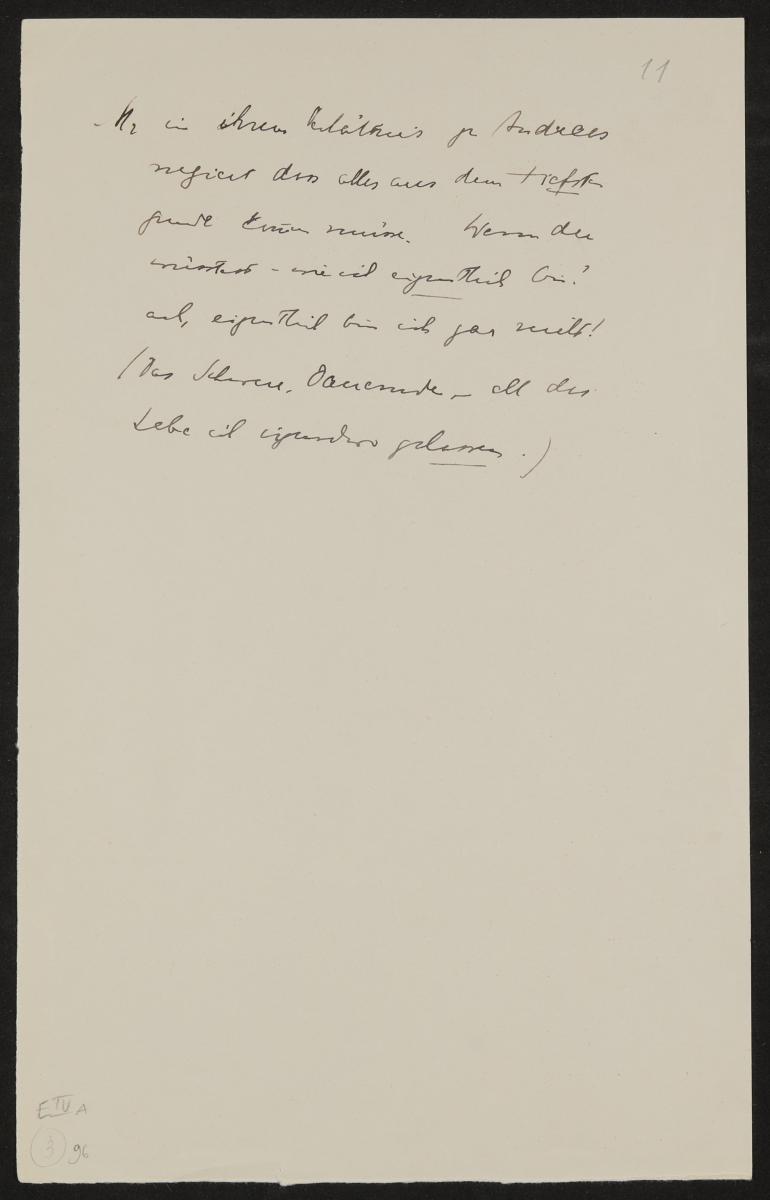 11
- N2 in ihrem Verhältnis zu Andreas
negiert dass alles aus dem tiefsten
grunde kommen müsse. Wenn du
wüsstest - wie ich eigentlich bin!
ach, eigentlich bin ich gar nicht!
(Das Schwere, Dauernde, - all das
habe ich irgendwo gelassen.)
E IV A
3 96